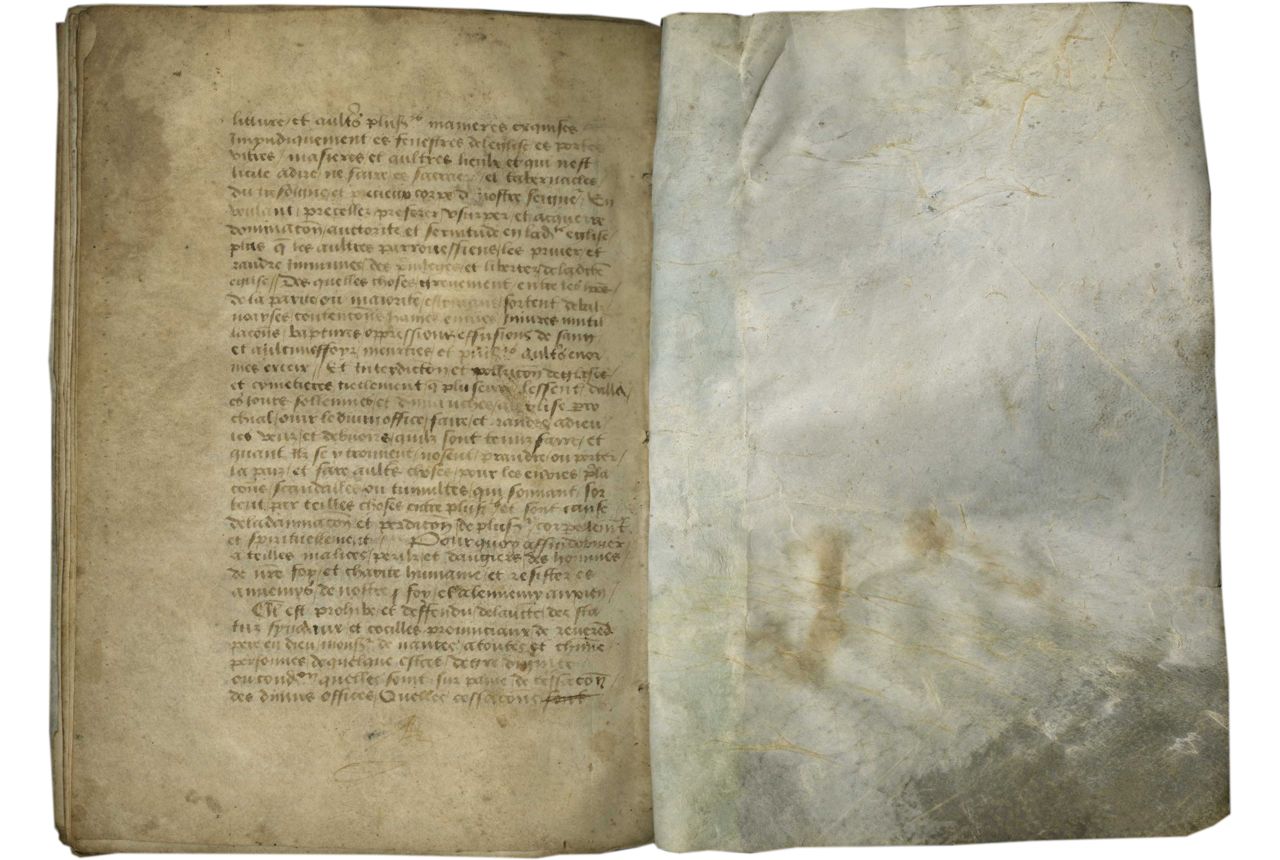 litture et aultrs plus manieres exquises
Impudiquement es fenestres de leglise es portes
vitres / masieres et aultres lieulx et qui nest
licite a dire ne faire es et tabernacles
du tresdigne et precieux corps d nostre seigne En
voulant preceller preferer usurper et acquerre
dominacon auctorite et servitude en lad eglise
plus q les aultres parrouessiens les priver et
randre immunes des privileges et libertez de ladicte
eglise // Des quelles choses entre les
de la partie ou maiorite sortent
vayses contencons haines envies iniures mutil
lacons baptures oppressions effusions de sang
et aulcuneffoys meurtres et plus aultrs enor
mes exceix // Et Interdicton et pollucon deglises
et cymetieres tiellement q pluseurs lessent dalle
es iours sollennes et dimanches a leglise pro
chial ouir le divin office faire et randre a dieu
les veux et debvoirs quilz sont tenuz faire et
quant ilz se y trouvent nosent prandre ou porter
la paix et faire aultrs choses pour les envies
cons scandalles ou tumultes qui sour
tent par teilles choses entre plus et sont cause
de la damnacon et perdicon de plus corpelemt
et spirituellement Pourquoy affin dobvier
a teilles malices perilz et dangiers des hommes
de nre foy et charite humaine et resister es
annemys de nostre foy et a lennemy anxien
Il est prohibe et deffendu de laucte des sta
tuz synaulx et cocilles provinciaux de reverend
pere en dieu mons de nantes a toutes et chune
personnes de quelque estat
ou condon quelles soint sur paine de cessacon
des divins offices Quelles cessacons sont